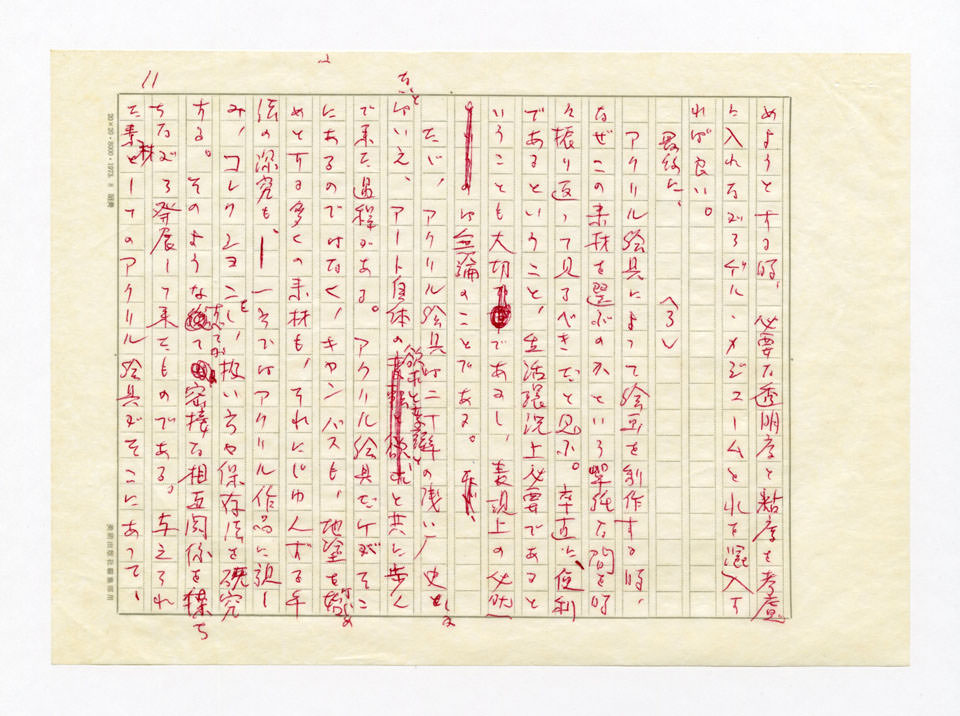 11
めようとする時、必要な透明度と粘度を考慮
に入れながらゲル・メジュームとれを混入す
れば良い。
〈3〉
最後に、
アクリル絵具によって絵画を制作する時、
なぜこの素材を選ぶのかという単純な問を時
々振り返って見るべきだと思ふ。卒直に、便利
であるということ、生活環況上必要であると
いうことも大切であるし、表現上の必然
は無論のことである。
ただ、アクリル絵具は二十年の浅い史
とはいえ、アート自体の欲求と共に歩ん
で来た過程がある。アクリル絵具だけがそこ
にあるのではなく、キャンバスも、地塗を始
めとする多くの素材も、それにじゅんずる手
法の深究も、一そではアクリル作品に親し
み、コレクションし、扱い方や保存法を研究
する。そのような密接な相互関係を持ち
ちながら発展して来たものである。与えられ
た素材としてのアクリル絵具がそこにあって、
20×20・8000・1973.
美術出版社編集部用